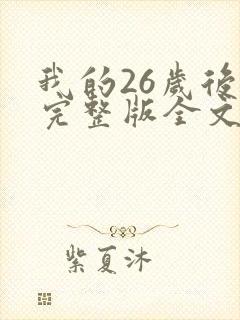 我的26歲後
完整版全文
紫夏沐